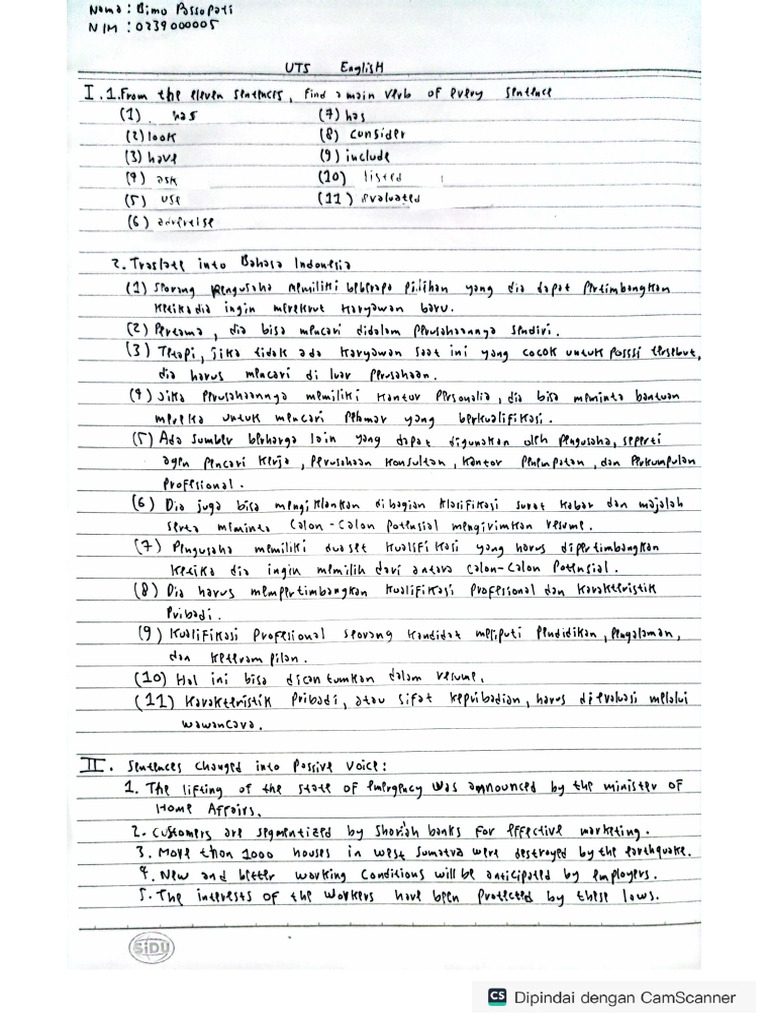 Nama : Bimo Passopati
NIM : 0239000005
UTS English
I. 1. From the eleven sentences, find a main verb of every sentence
(1) has (7) has
(2) look (8) consider
(3) have (9) include
(4) ask (10) listed
(5) use (11) evaluated
(6) advertise
2. Traslate into Bahasa Indonesia
(1) Seorang Pengusaha memiliki beberapa pilihan yang dia dapat Pertimbangkan
ketika dia ingin merekrut karyawan baru.
(2) Pertama, dia bisa mencari didalam perusahaannya sendiri.
(3) Tetapi, jika tidak ada karyawan saat ini yang cocok untuk posisi tersebut,
dia harus mencari di luar perusahaan.
(4) Jika Perusahaannya memiliki kantor Personalia, dia bisa meminta bantuan
mereka untuk mencari Pelamar yang berkualifikasi.
(5) Ada sumber berharga lain yang dapat digunakan oleh Pengusaha, seperti
agen Pencari Kerja, Perusahaan Konsultan, Kantor Penempatan, dan Perkumpulan
Profesional.
(6) Dia juga bisa mengiklankan dibagian klasifikasi surat kabar dan majalah
serta meminta calon-calon Potensial mengirimkan resume.
(7) Pengusaha memiliki dua set kualifikasi yang harus dipertimbangkan
ketika dia ingin memilih dari antara calon-calon Potensial.
(8) Dia harus mempertimbangkan kualifikasi Profesional dan karakteristik
Pribadi.
(9) Kualifikasi Profesional seorang kandidat meliputi Pendidikan, Pengalaman,
dan keterampilan.
(10) Hal ini bisa dicantumkan dalam resume.
(11) Karakteristik Pribadi, atau sifat kepribadian, harus dievaluasi melalui
wawancara.
II. Sentences changed into Passive Voice:
1. The lifting of the state of emergency was announced by the minister of
Home Affairs.
2. Customers are segmentized by Shariah banks for effective marketing.
3. More than 1000 houses in west Sumatra were destroyed by the earthquake.
4. New and better working conditions will be anticipated by employers.
5. The interests of the workers have been Protected by these laws.
SiDU
CS Dipindai dengan CamScanner